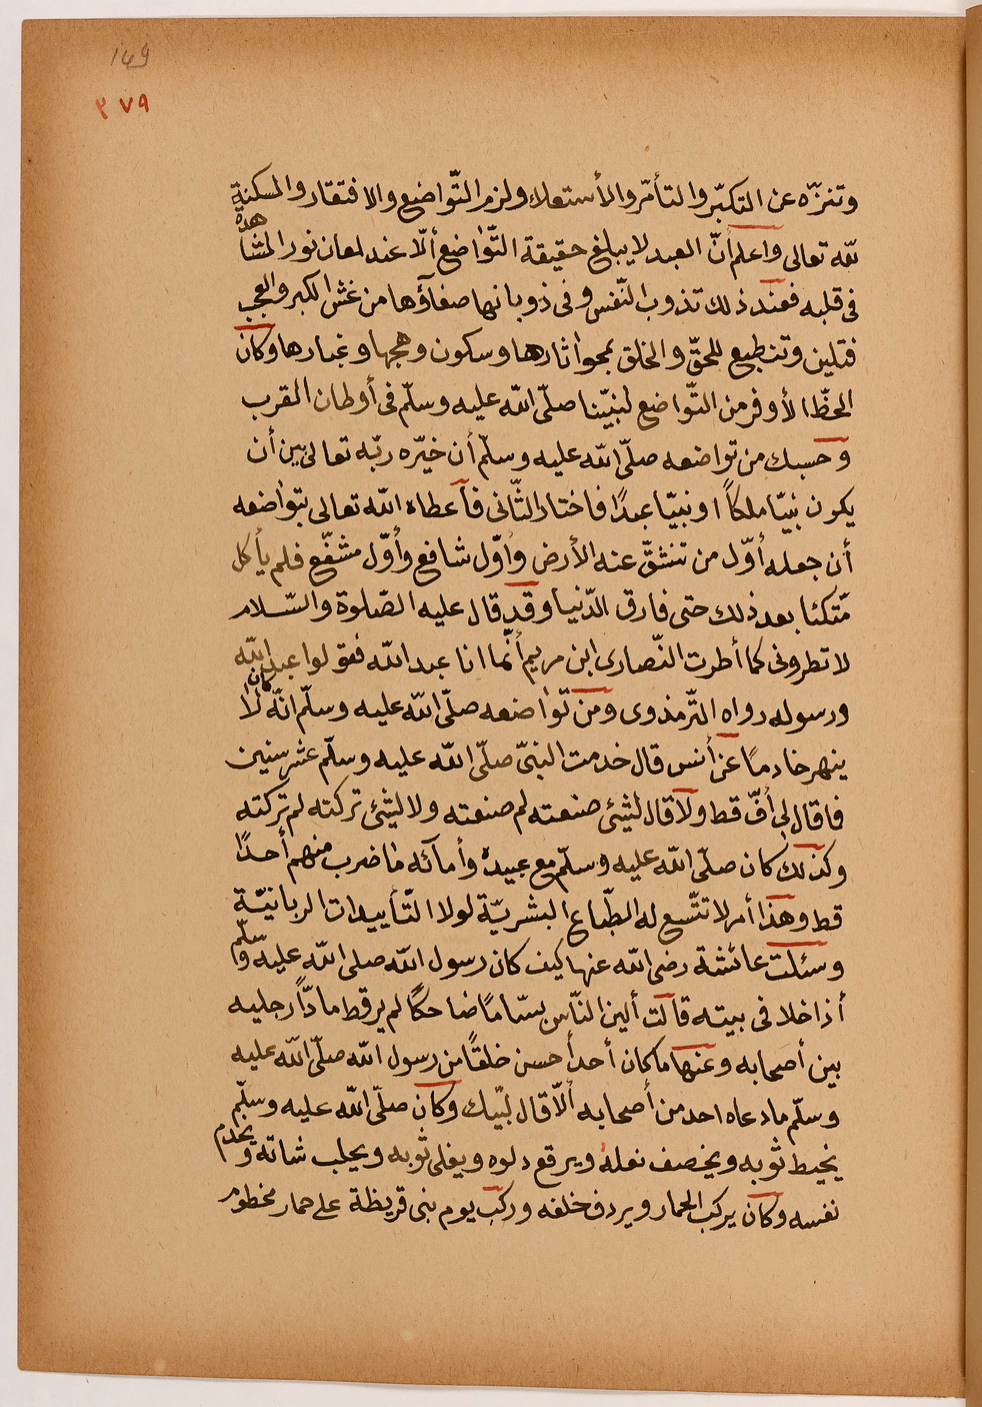 149
٣٧٩
وتنزّه عن التكبّر والتأمّر والأستعلاء ولزم التّواضع والافتقار والمسكنة
للّه تعالى واعلم أنّ العبد لا يبلغ حقيقة التّواضع ألّا عند لمعان نور المشاهدة
فى قلبه فعند ذلك تذوب النّفس وفى ذوبانها صفآؤها من غشّ الكبر والعجب
فتلين وتنطبع للحقّ والخلق بمحو اثارها وسكون وهجها وغبارها وكان
الحظّ الأوفر من التّواضع لنبيّنا صلّى اللّه عليه وسلّم فى أوطان القرب
وحسبك من تواضعه صلّى اللّه عليه وسلّم أن خيّره ربّه تعالى بين أن
يكون نبيّا ملكاً او نبيّا عبدًا فاختار الثّانى فأعطاه اللّه تعالى بتواضعه
أن جعله أوّل من تنشقّ عنه الأرض وأوّل شافع وأوّل مشفّع فلم يأكل
متّكئا بعد ذلك حتى فارق الدّنيا وقد قال عليه الصّلوة والسّلام
لا تطرونى كما أطرت النّصارى ابن مريم أنّما انا عبد اللّه فقولوا عبد اللّه
ورسوله رواه التّرمذوى ومن تواضعه صلّى اللّه عليه وسلّم انّه كان لا
ينهر خادمًا عن أنس قال خدمت النبىّ صلّى اللّه عليه وسلّم عشر سنين
فاقال لى أفّ قط ولا قال لشئ صنعته لم صنعته ولا لشئ تركته لم تركته
وكذلك كان صلّى اللّه عليه وسلّم مع عبيده وأمآئه ما ضرب منهم أحدًا
قط وهذا أمر لا تتّسع له الطّباع البشريّة لولا التّأييدات الربانيّة
وسئلت عائشة رضى اللّه عنها كيف كان رسول اللّه صلى اللّه عليه وسلّم
أذا خلا فى بيته قالت ألين النّاس بسّامًا ضاحكًا لم ير قط مادًّا رجليه
بين أصحابه وعنها ما كان أحد أحسن خلقًا من رسول اللّه صلّى اللّه عليه
وسلّم ما دعاه احد من أصحابه ألّا قال لبّيك وكان صلّى اللّه عليه وسلّم
يخيط ثوبه ويخصف نعله ويرقع دلوه ويفلى ثوبه ويحلب شاته ويخدم
نفسه وكان يركب الحمار ويردف خلفه وركب يوم بنى قريظة على حمار مخطوم